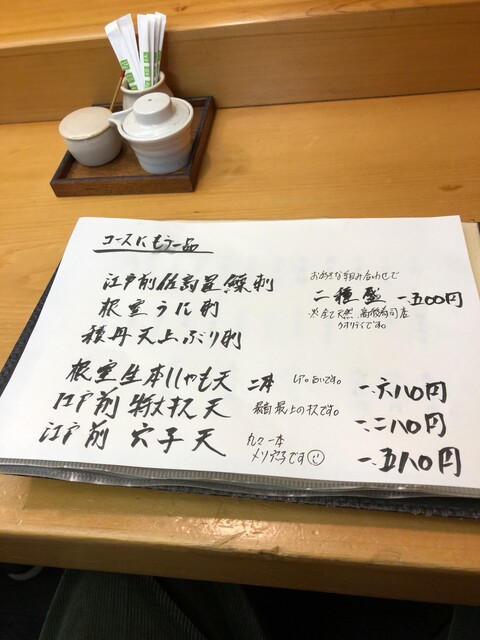 コースにもう一品
江戸前佐島産鰹刺
根室うに刺
積丹天上ぶり刺
お好きな組み合わせで
二種盛 一、五〇〇円
※全て天然、高級寿司店
クオリティです。
根室生本ししゃも天 二本 レア。旨いです。 一、六八〇円
江戸前 特大キス 天 最高最上のキスです。 一、二八〇円
江戸前 穴子天 丸々一本
メソ穴子です 一、五八〇円